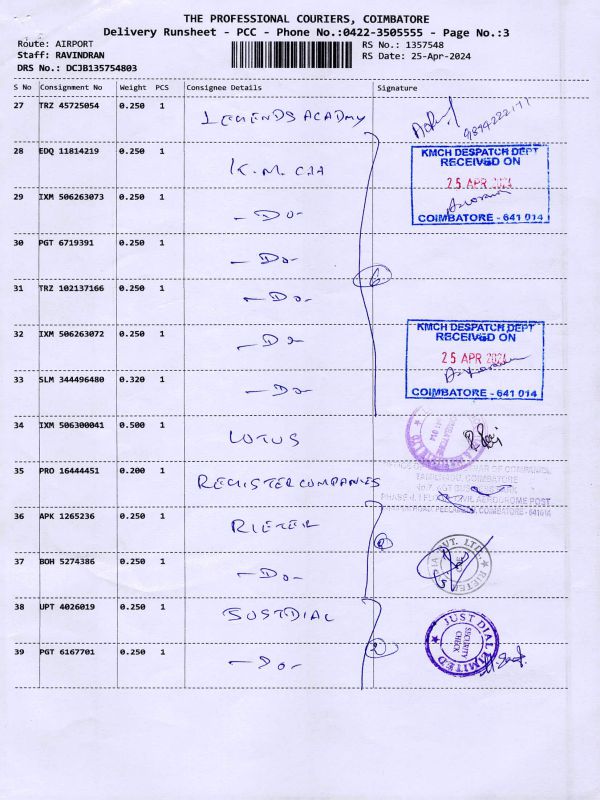 THE PROFESSIONAL COURIERS, COIMBATORE
Delivery Runsheet - PCC - Phone No.:0422-3505555 - Page No.:3
Route: AIRPORT RS No.: 1357548
Staff: RAVINDRAN RS Date: 25-Apr-2024
DRS No.: DCJB135754803
S No Consignment No Weight PCS Consignee Details Signature
27 TRZ 45725054 0.250 1 LEGENDS ACADEMY
28 EDQ 11814219 0.250 1 K.M.CH
KMCH DESPATCH DEPT
RECEIVED ON
25 APR 2024
COIMBATORE - 641 014
29 IXM 506263073 0.250 1 - Do -
30 PGT 6719391 0.250 1 - Do -
31 TRZ 102137166 0.250 1 - Do -
6
32 IXM 506263072 0.250 1 - Do -
KMCH DESPATCH DEPT
RECEIVED ON
25 APR 2024
COIMBATORE - 641 014
33 SLM 344496480 0.320 1 - Do -
34 IXM 506300041 0.500 1 LOTUS
35 PRO 16444451 0.200 1 REGISTER COMPANIES
36 APK 1265236 0.250 1 RIETER
2
37 BOH 5274386 0.250 1 - Do -
RIETER
38 UPT 4026019 0.250 1 JUSTDIAL
JUST DIAL LIMITED
SECURITY
CHECK
39 PGT 6167701 0.250 1 - Do -
2